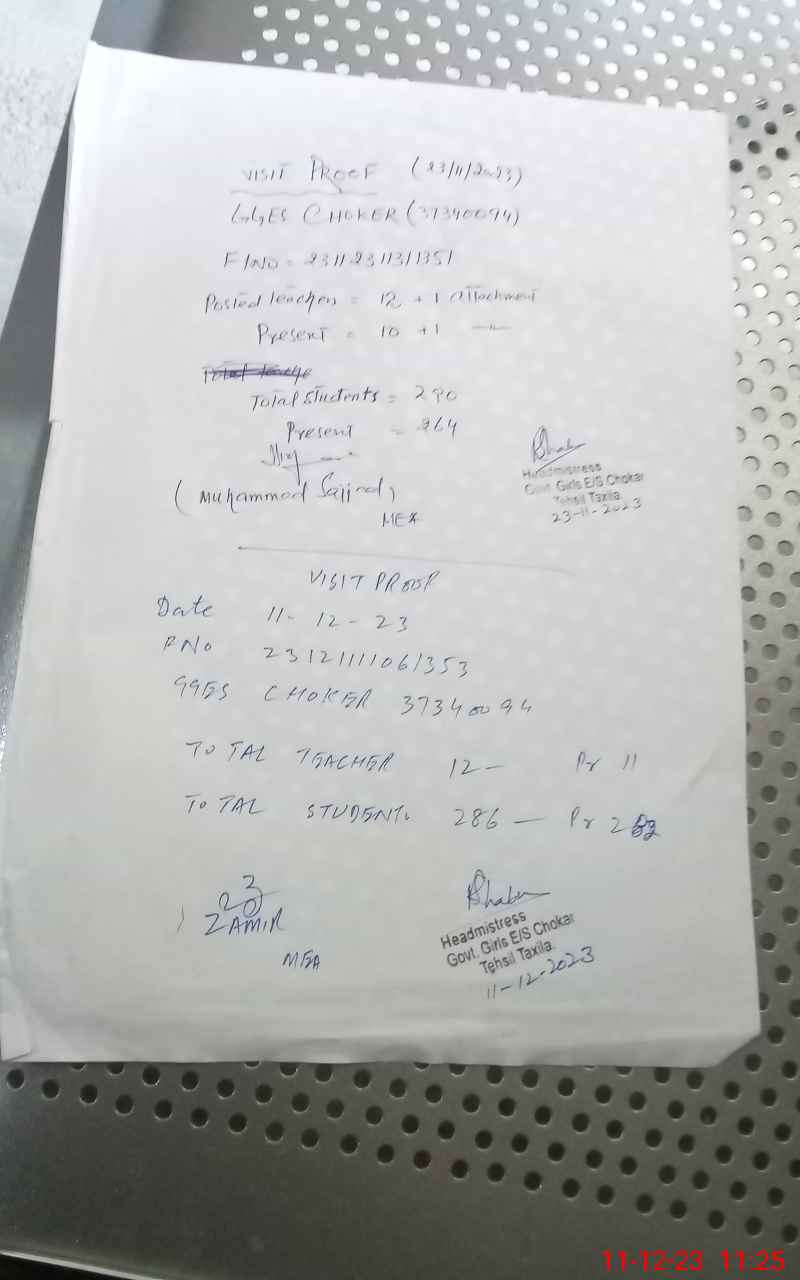 VISIT PROOF (23/11/2023)
GGES CHOKER (37340094)
F/NO = 23112311311351
Posted teachers = 12 + 1 attachment
Present = 10 + 1
Total Students = 290
Present = 264
(Muhammad Sajjad)
MEA
Headmistress
Govt. Girls E/S Chokar
Tehsil Taxila
23-11-2023
VISIT PROOF
Date 11-12-23
F No 23121111061353
GGES CHOKER 37340094
TOTAL TEACHER 12 - Pr 11
TOTAL STUDENT. 286 — Pr
ZAMIR
MEA
Headmistress
Govt. Girls E/S Chokar
Tehsil Taxila
11-12-2023
11-12-23 11:25